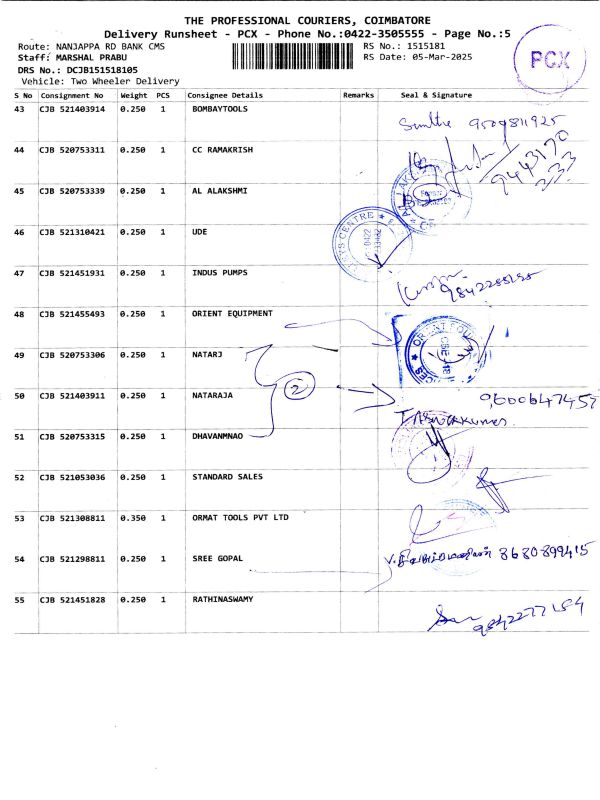 THE PROFESSIONAL COURIERS, COIMBATORE
Delivery Runsheet - PCX - Phone No.:0422-3505555 - Page No.:5
Route: NANJAPPA RD BANK CMS RS No.: 1515181
Staff: MARSHAL PRABU RS Date: 05-Mar-2025
DRS No.: DCJB151518105
Vehicle: Two Wheeler Delivery
PCX
S No Consignment No Weight PCS Consignee Details Remarks Seal & Signature
43 CJB 521403914 0.250 1 BOMBAYTOOLS
9509811925
44 CJB 520753311 0.250 1 CC RAMAKRISH
9443170
233
45 CJB 520753339 0.250 1 AL ALAKSHMI
46 CJB 521310421 0.250 1 UDE
47 CJB 521451931 0.250 1 INDUS PUMPS
48 CJB 521455493 0.250 1 ORIENT EQUIPMENT
49 CJB 520753306 0.250 1 NATARJ
50 CJB 520403911 0.250 1 NATARAJA
2
9600647457
51 CJB 520753315 0.250 1 DHAVANMNAO
52 CJB 521053036 0.250 1 STANDARD SALES
53 CJB 521308811 0.350 1 ORMAT TOOLS PVT LTD
54 CJB 521298811 0.250 1 SREE GOPAL
8680899415
55 CJB 521451828 0.250 1 RATHINASWAMY
9842277184